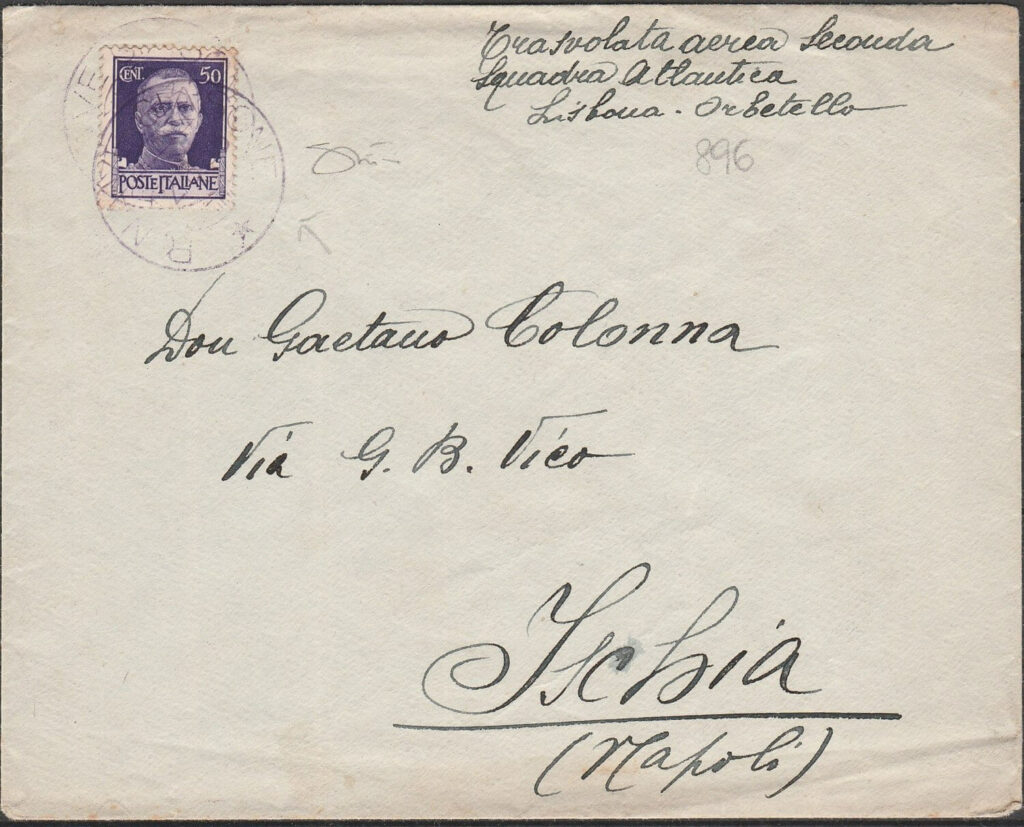 CENT. 50
POSTE ITALIANE
Trasvolata aerea Seconda
Squadra Atlantica
Lisbona - Orbetello
896
Don Gaetano Colonna
Via G. B. Vico
Ischia
(Napoli)